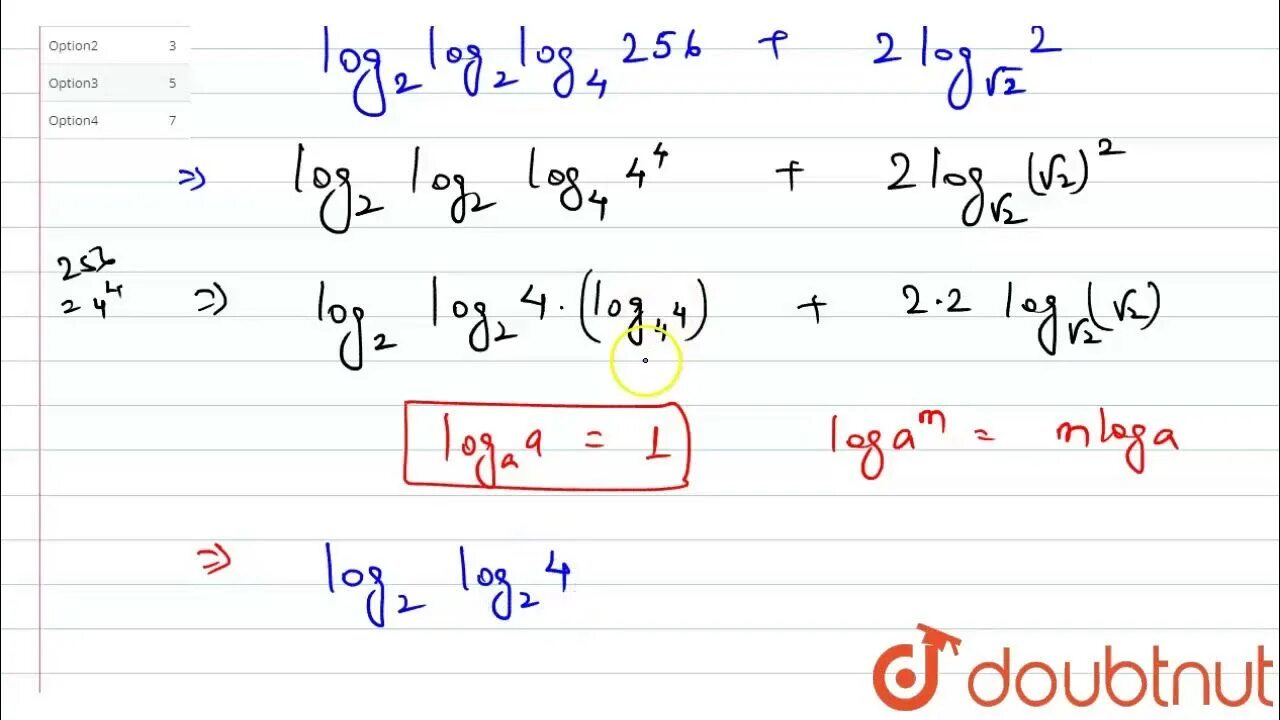 Option2 3
Option3 5
Option4 7
log₂ log₂ log₄ 256 + 2 log_√2 2
⇒ log₂ log₂ log₄ 4⁴ + 2 log_√2 (√2)²
256
= 4⁴
⇒ log₂ log₂ 4·(log₄ 4) + 2·2 log_√2 (√2)
logₐ a = 1
log aᵐ = m log a
⇒ log₂ log₂ 4
doubtnut